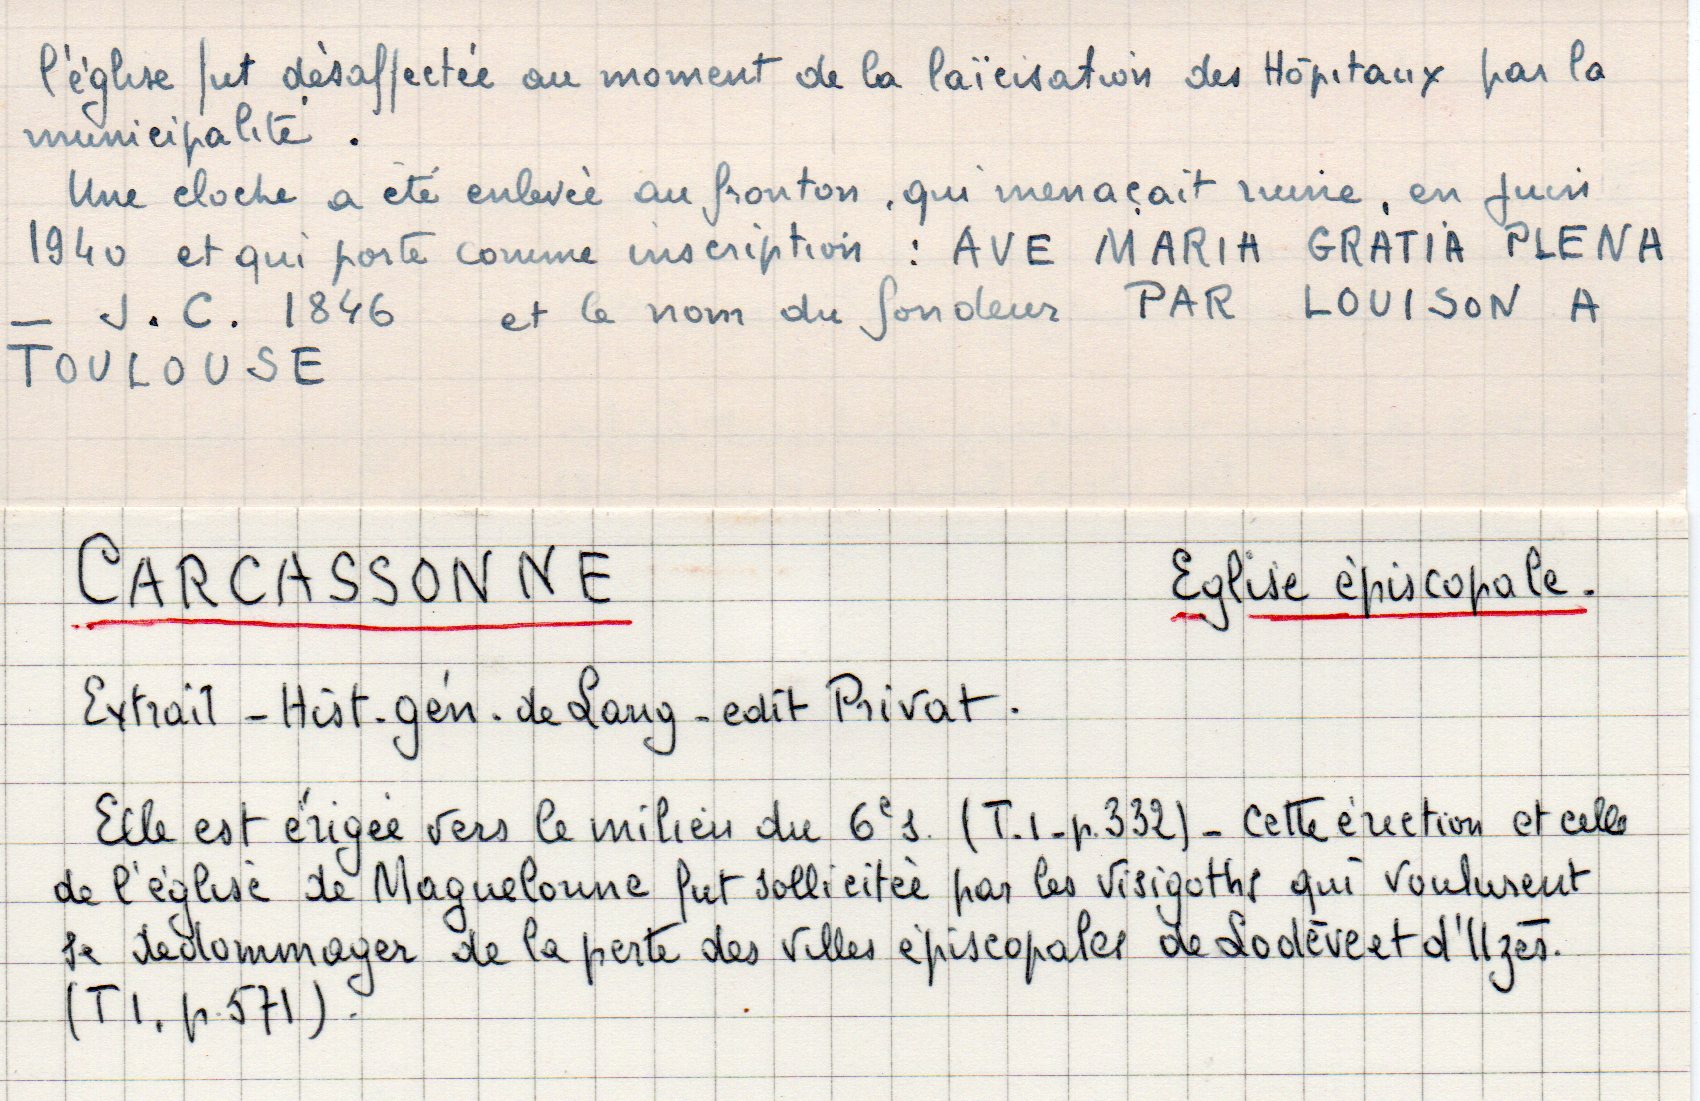 l'église fut désaffectée au moment de la laïcisation des Hôpitaux par la
municipalité.
Une cloche a été enlevée au fronton, qui menaçait ruine, en juin
1940 et qui porte comme inscription : AVE MARIA GRATIA PLENA
_ J. C. 1846 et le nom du fondeur PAR LOUISON A
TOULOUSE
CARCASSONNE Eglise épiscopale.
Extrait - Hist. gén. de Lang - edit Privat.
Elle est érigée vers le milieu du 6e s. (T.1 - p. 332) - Cette érection et celle
de l'église de Maguelonne fut sollicitée par les Visigoths qui voulurent
se dedommager de la perte des villes épiscopales de Lodève et d'Uzès.
(T 1, p. 571).